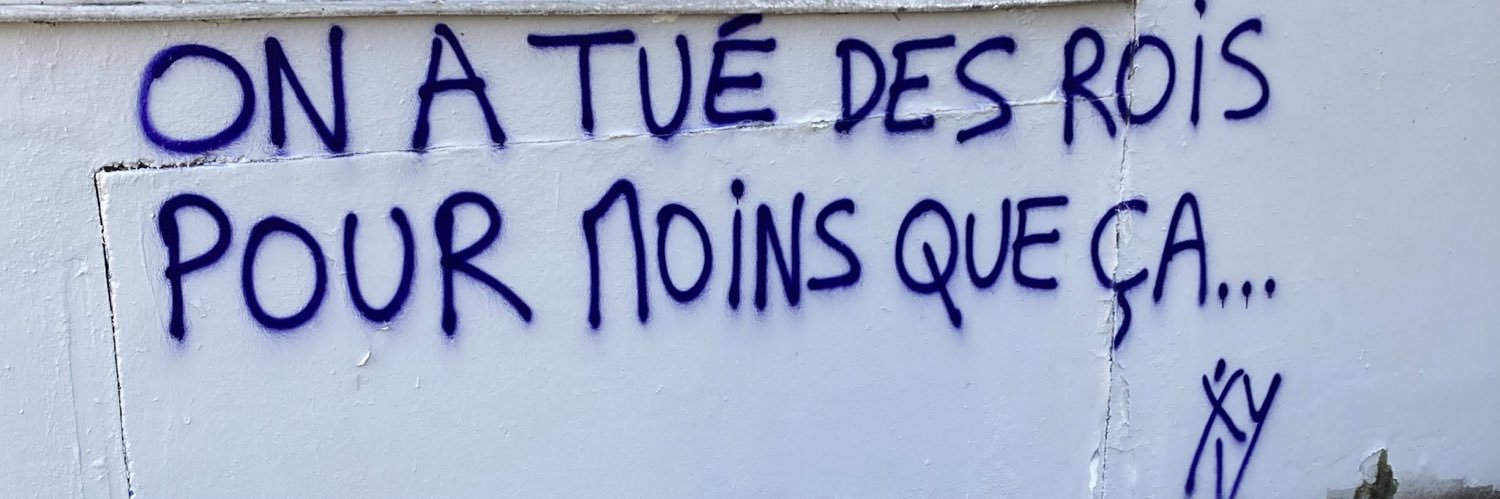 ON A TUÉ DES ROiS
POUR MOiNS QUE ÇA...